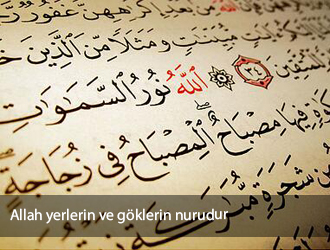 غَفُورٌ
مُّبَيِّنَٰتٍ وَمَثَلًا مِّنَ ٱلَّذِينَ
٣٤ ٱللَّهُ نُورُ ٱلسَّمَٰوَٰتِ
فِيهَا مِصْبَاحٌ ٱلْمِصْبَاحُ فِي زُجَاجَةٍ
شَجَرَةٍ مُّبَٰرَكَةٍ
Allah yerlerin ve göklerin nurudur